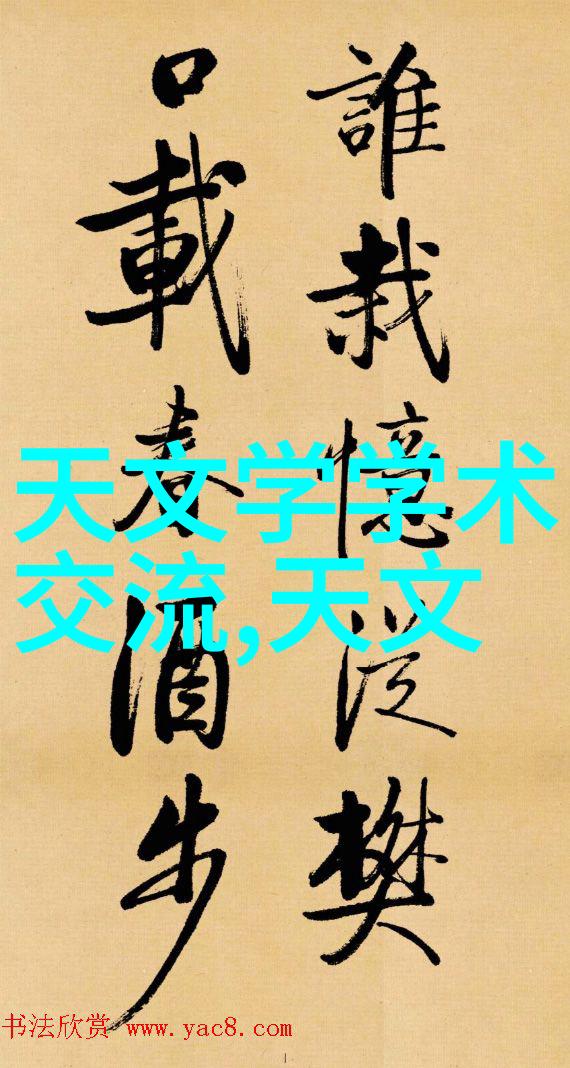 誰栽憶從樊
口載春酒步
天文学学术
交流,天文
书法欣赏 www.yac8.com